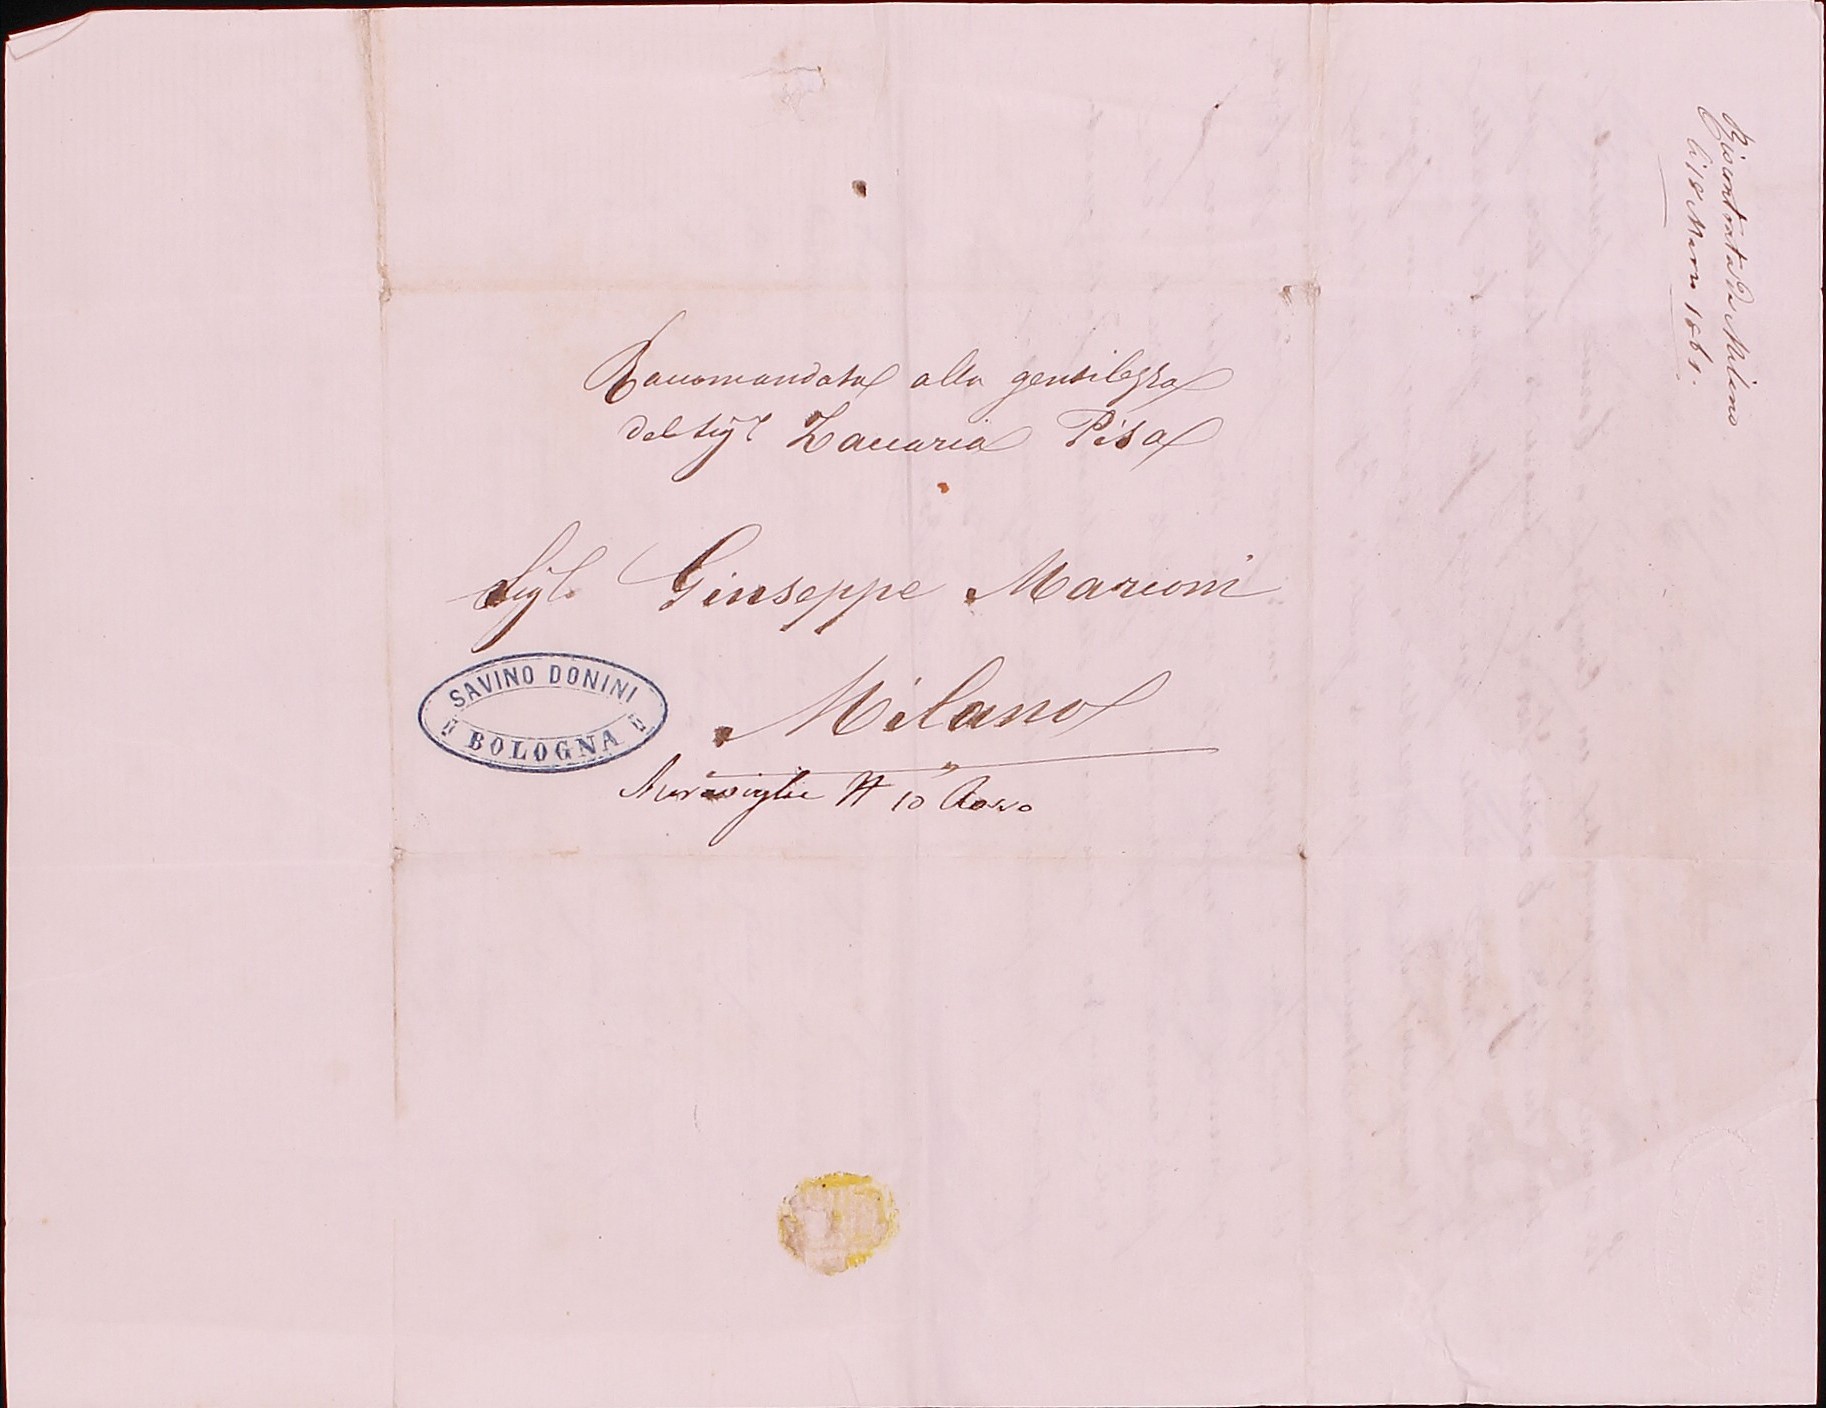 Raccomandata alla gentilezza
del Sigr Zaccaria Pisa
Sigr Giuseppe Marconi
Milano
Meraviglie N 10 Rosso
SAVINO DONINI
BOLOGNA
Riscontrata da Milano
li 18 Marzo 1861.